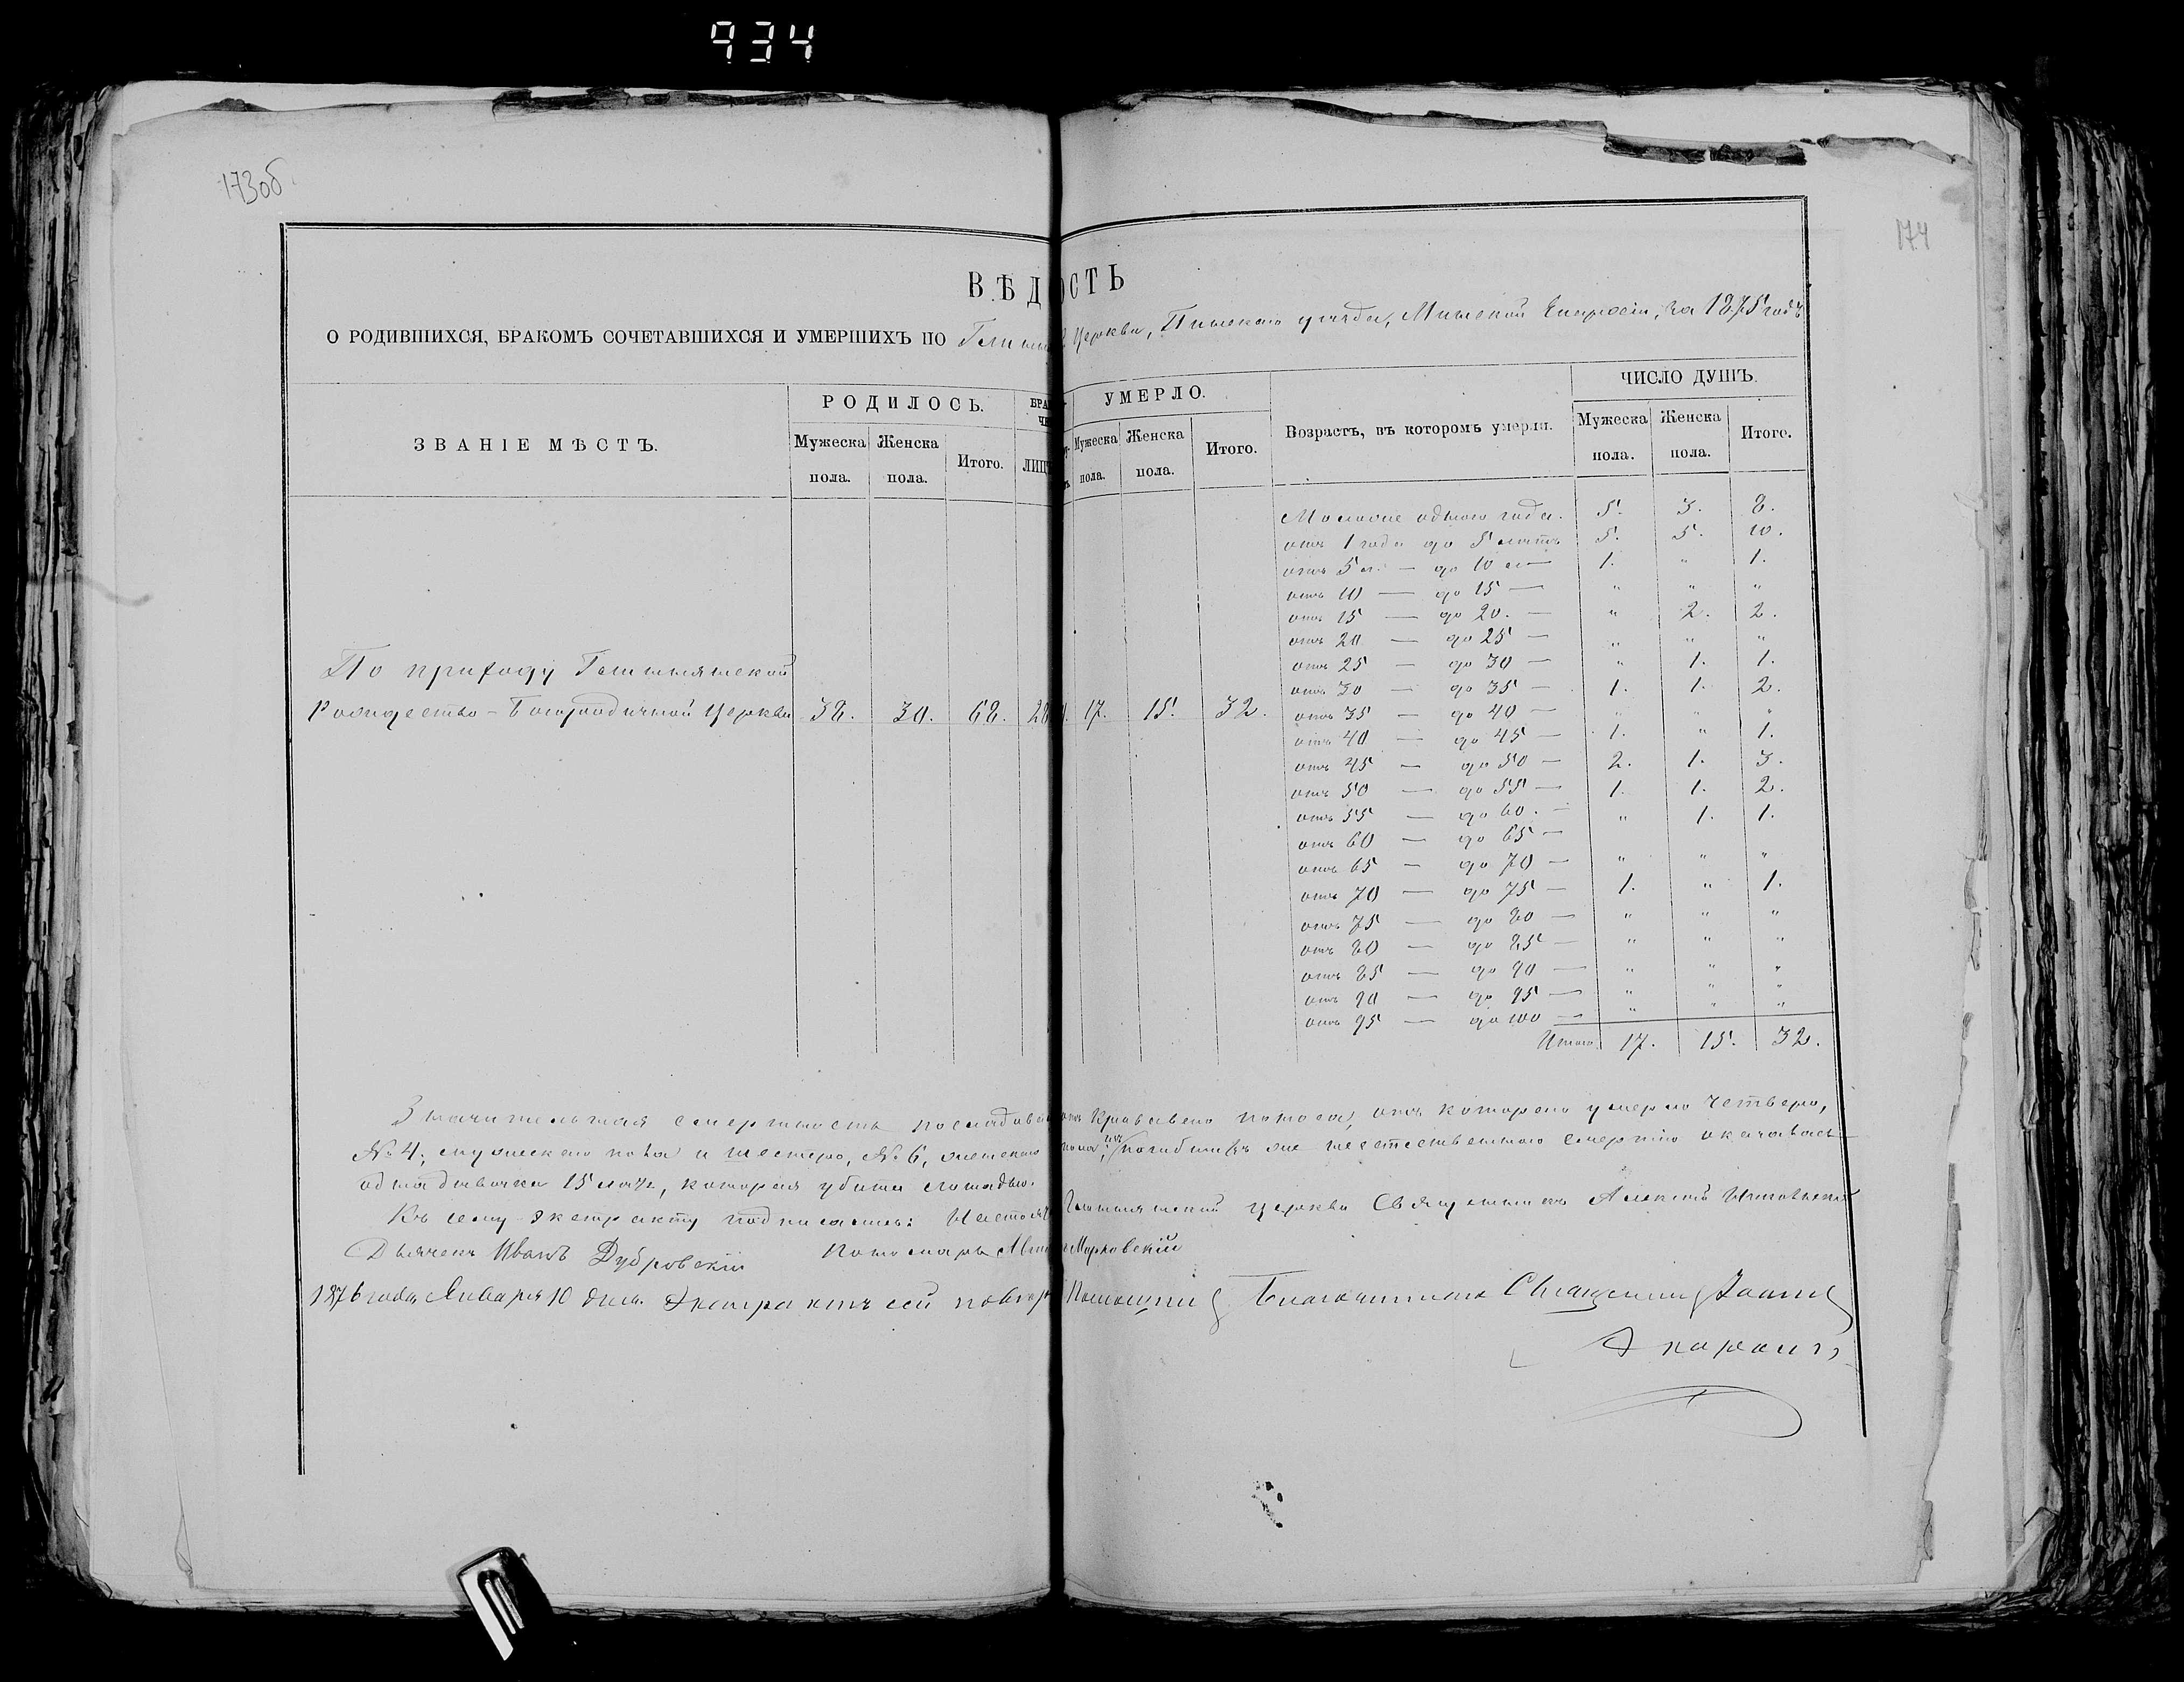 934
173об
174
ВѢД ОСТЬ
О РОДИВШИХСЯ, БРАКОМЪ СОЧЕТАВШИХСЯ И УМЕРШИХЪ ПО церкви, Пинскаго уѣзда, Минской Епархіи, за 1875 годъ
ЗВАНІЕ МѢСТЪ.
РОДИЛОСЬ.
Мужеска пола.
Женска пола.
Итого.
БРА
ЧЕ
ЛИЦ
УМЕРЛО.
Мужеска пола.
Женска пола.
Итого.
Возрастъ, въ которомъ умерли.
ЧИСЛО ДУШЪ.
Мужеска пола.
Женска пола.
Итого.
Моложе одного года. 5. 3. 8.
отъ 1 года до 5 лѣтъ 5. 5. 10.
отъ 5 л. — до 10 л — 1. " 1.
отъ 10 — до 15 — " " "
отъ 15 — до 20. — " 2. 2.
отъ 20 — до 25 — " " "
отъ 25 — до 30 — " 1. 1.
отъ 30 — до 35 — 1. 1. 2.
отъ 35 — до 40 — " " "
отъ 40 — до 45 — 1. " 1.
отъ 45 — до 50 — 2. 1. 3.
отъ 50 — до 55 — 1. 1. 2.
отъ 55 — до 60. — " 1. 1.
отъ 60 — до 65 —
отъ 65 — до 70 — " " "
отъ 70 — до 75 — 1. " 1.
отъ 75 — до 80 — " " "
отъ 80 — до 85 — " " "
отъ 85 — до 90 — " " "
отъ 90 — до 95 — " " "
отъ 95 — до 100 — " " "
Итого 17. 15. 32.
По приходу
Рождество-Богородичной Церкви 38. 30. 68. 28 17. 15. 32.
Значительная смертность послѣдова отъ Кроваваго поноса, отъ котораго умерло четверо,
№ 4, мужескаго пола и шестеро, № 6, женскаго пола; погибшихъ же неестественною смертію оказалась
одна дѣвочка 15 лѣтъ, которая убита лошадью.
Къ сему экстракту подписались: церкви Священникъ Алексѣй
Дьячекъ Иванъ Дубровскій Пономарь Марковскій
1876 года Января 10 дня. Экстрактъ сей повѣр Благочинный Священникъ Іоаннъ